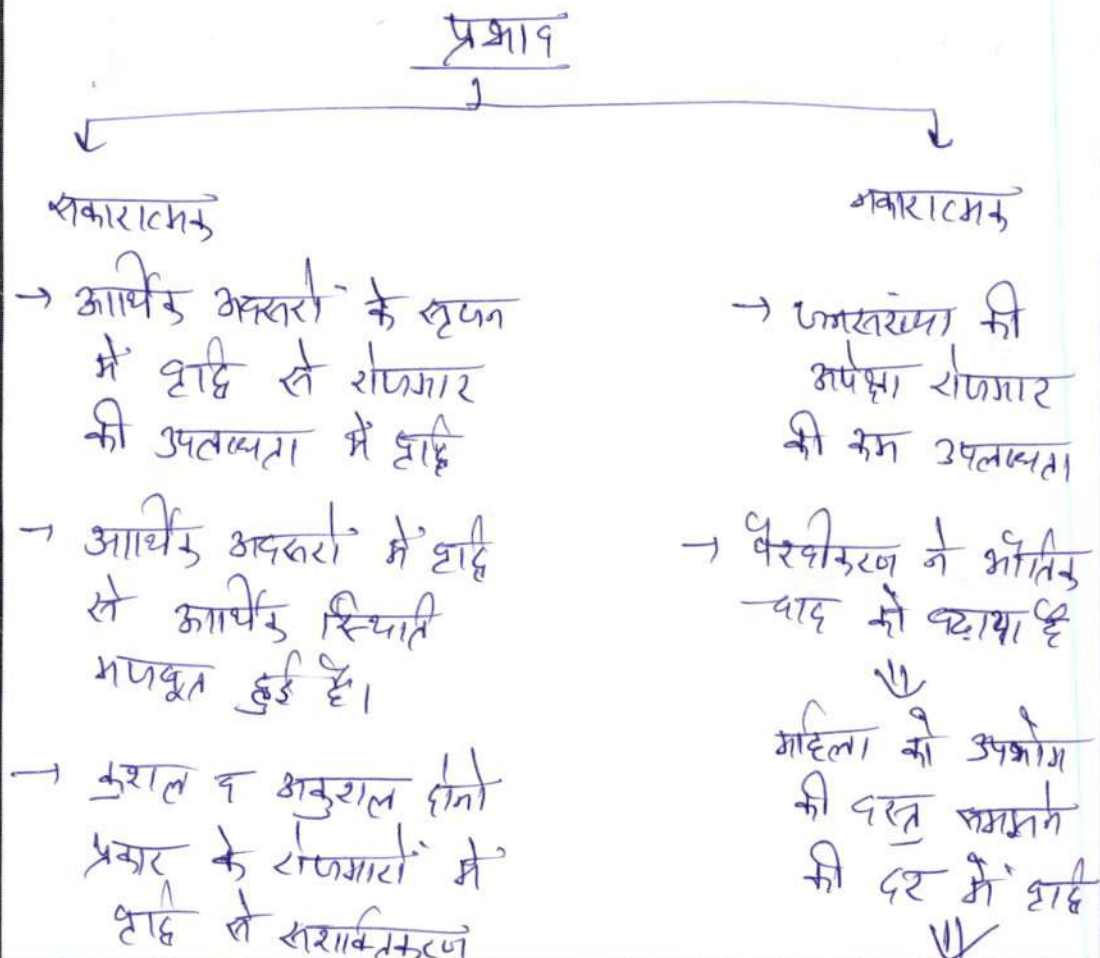 प्रभाव
सकारात्मक
→ आर्थिक अवसरों के सृजन
में वृद्धि से रोजगार
की उपलब्धता में वृद्धि
→ आर्थिक अवसरों में वृद्धि
से आर्थिक स्थिति
मजबूत हुई है।
→ कुशल व अकुशल दोनों
प्रकार के रोजगारों में
वृद्धि से सशक्तिकरण
नकारात्मक
→ जनसंख्या की
अपेक्षा रोजगार
की कम उपलब्धता
→ वैश्वीकरण ने भौतिक
वाद को बढ़ाया है
महिला को उपभोग
की वस्तु समझने
की दर में वृद्धि